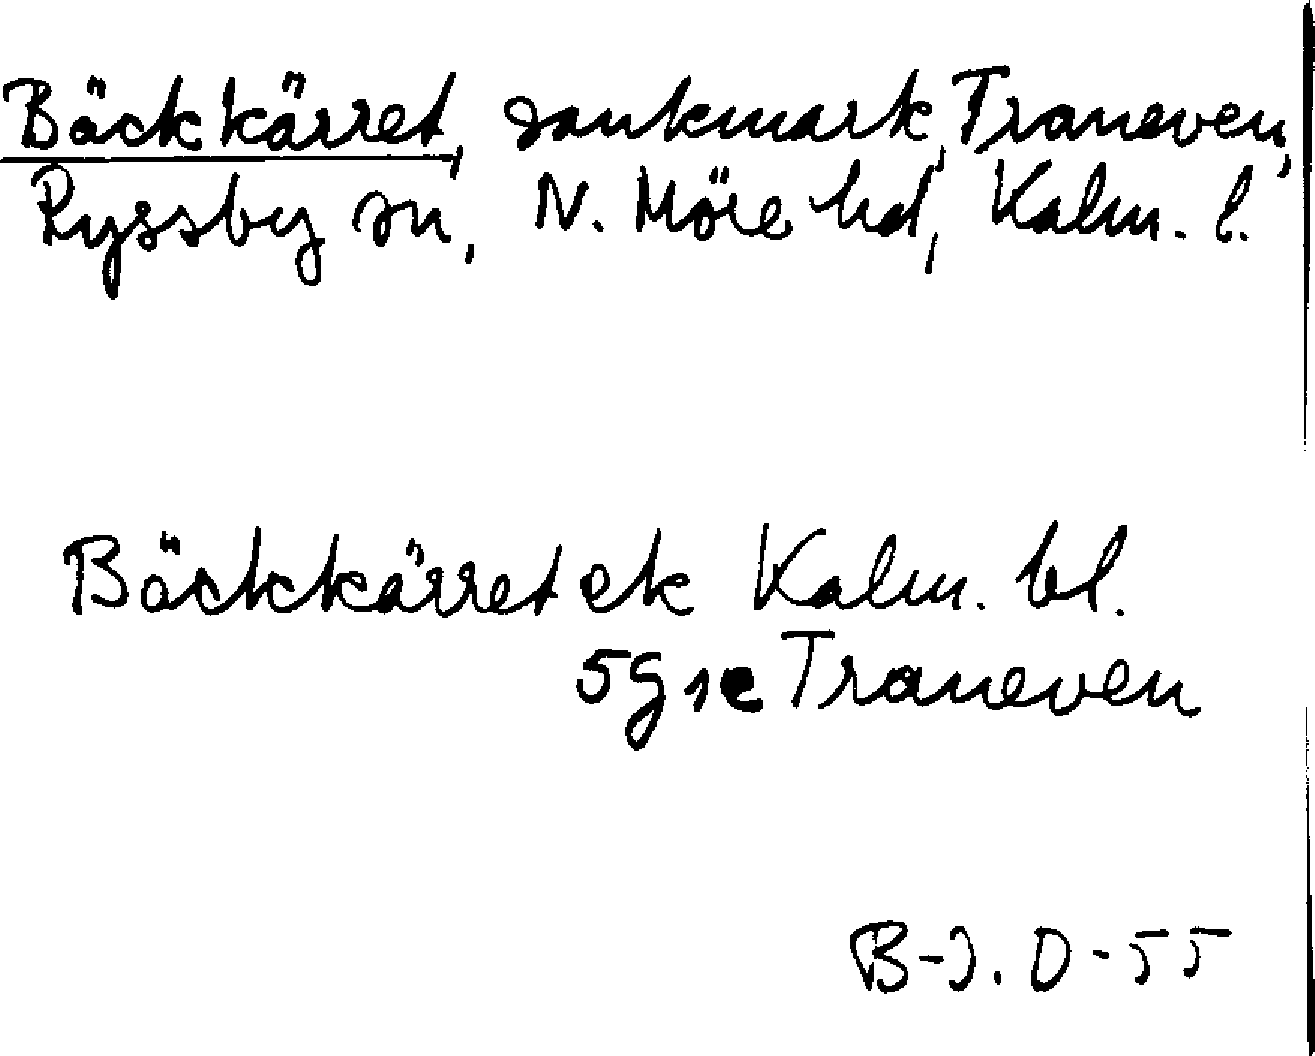 Bäckkärret, sankmark, Traneven,
Ryssby sn, N. Möre hd, Kalm. l.
Bäckkärret ek Kalm. bl.
5G1e Traneven
B-J. D-55